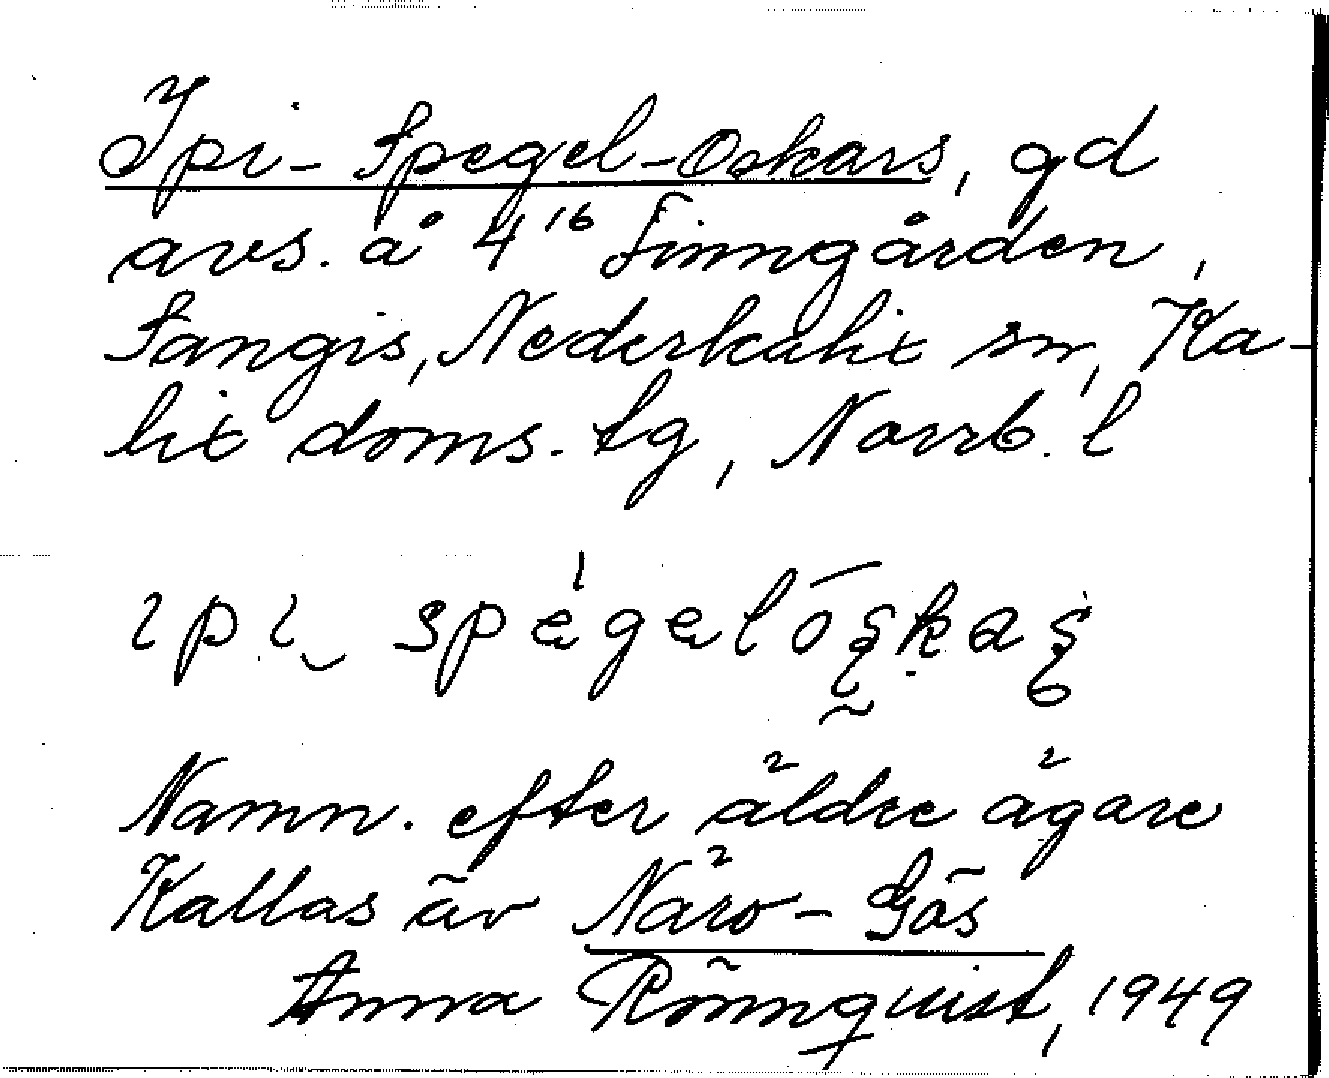 Ipi-Spegel-Oskars, gd
avs. å 4¹⁶ Finngården,
Sangis, Nederkalix sn, Ka-
lix doms. tg, Norrb. l
ipi spegelåskas
Namn. efter äldre ägare
Kallas äv Näro-Gös
Anna Rönnquist, 1949